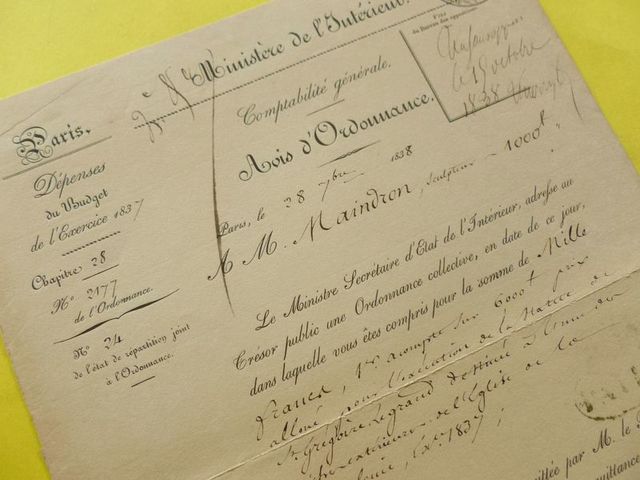 Ministère de l'Intérieur.
Comptabilité générale.
Avis d'Ordonnance.
Visa
au Bureau des oppositions
le 15 octobre
1838
Paris.
Dépenses
du Budget
de l'Exercice 1837
Chapitre 28
N° 2177
de l'Ordonnance.
N° 24
de l'état de répartition joint
à l'Ordonnance.
Paris, le 28 7bre 1838
A M. Maindron, sculpteur 1000f
Le Ministre Secrétaire d'État de l'Intérieur, adresse au
Trésor public une Ordonnance collective, en date de ce jour,
dans laquelle vous êtes compris pour la somme de Mille
francs, 1er acompte sur 6000f prix
alloué pour l'exécution de la statue de
St Grégoire Legrand destiné à l'une des
extérieures de l'Église de la
Ex.ce 1837
par M. le
quittance